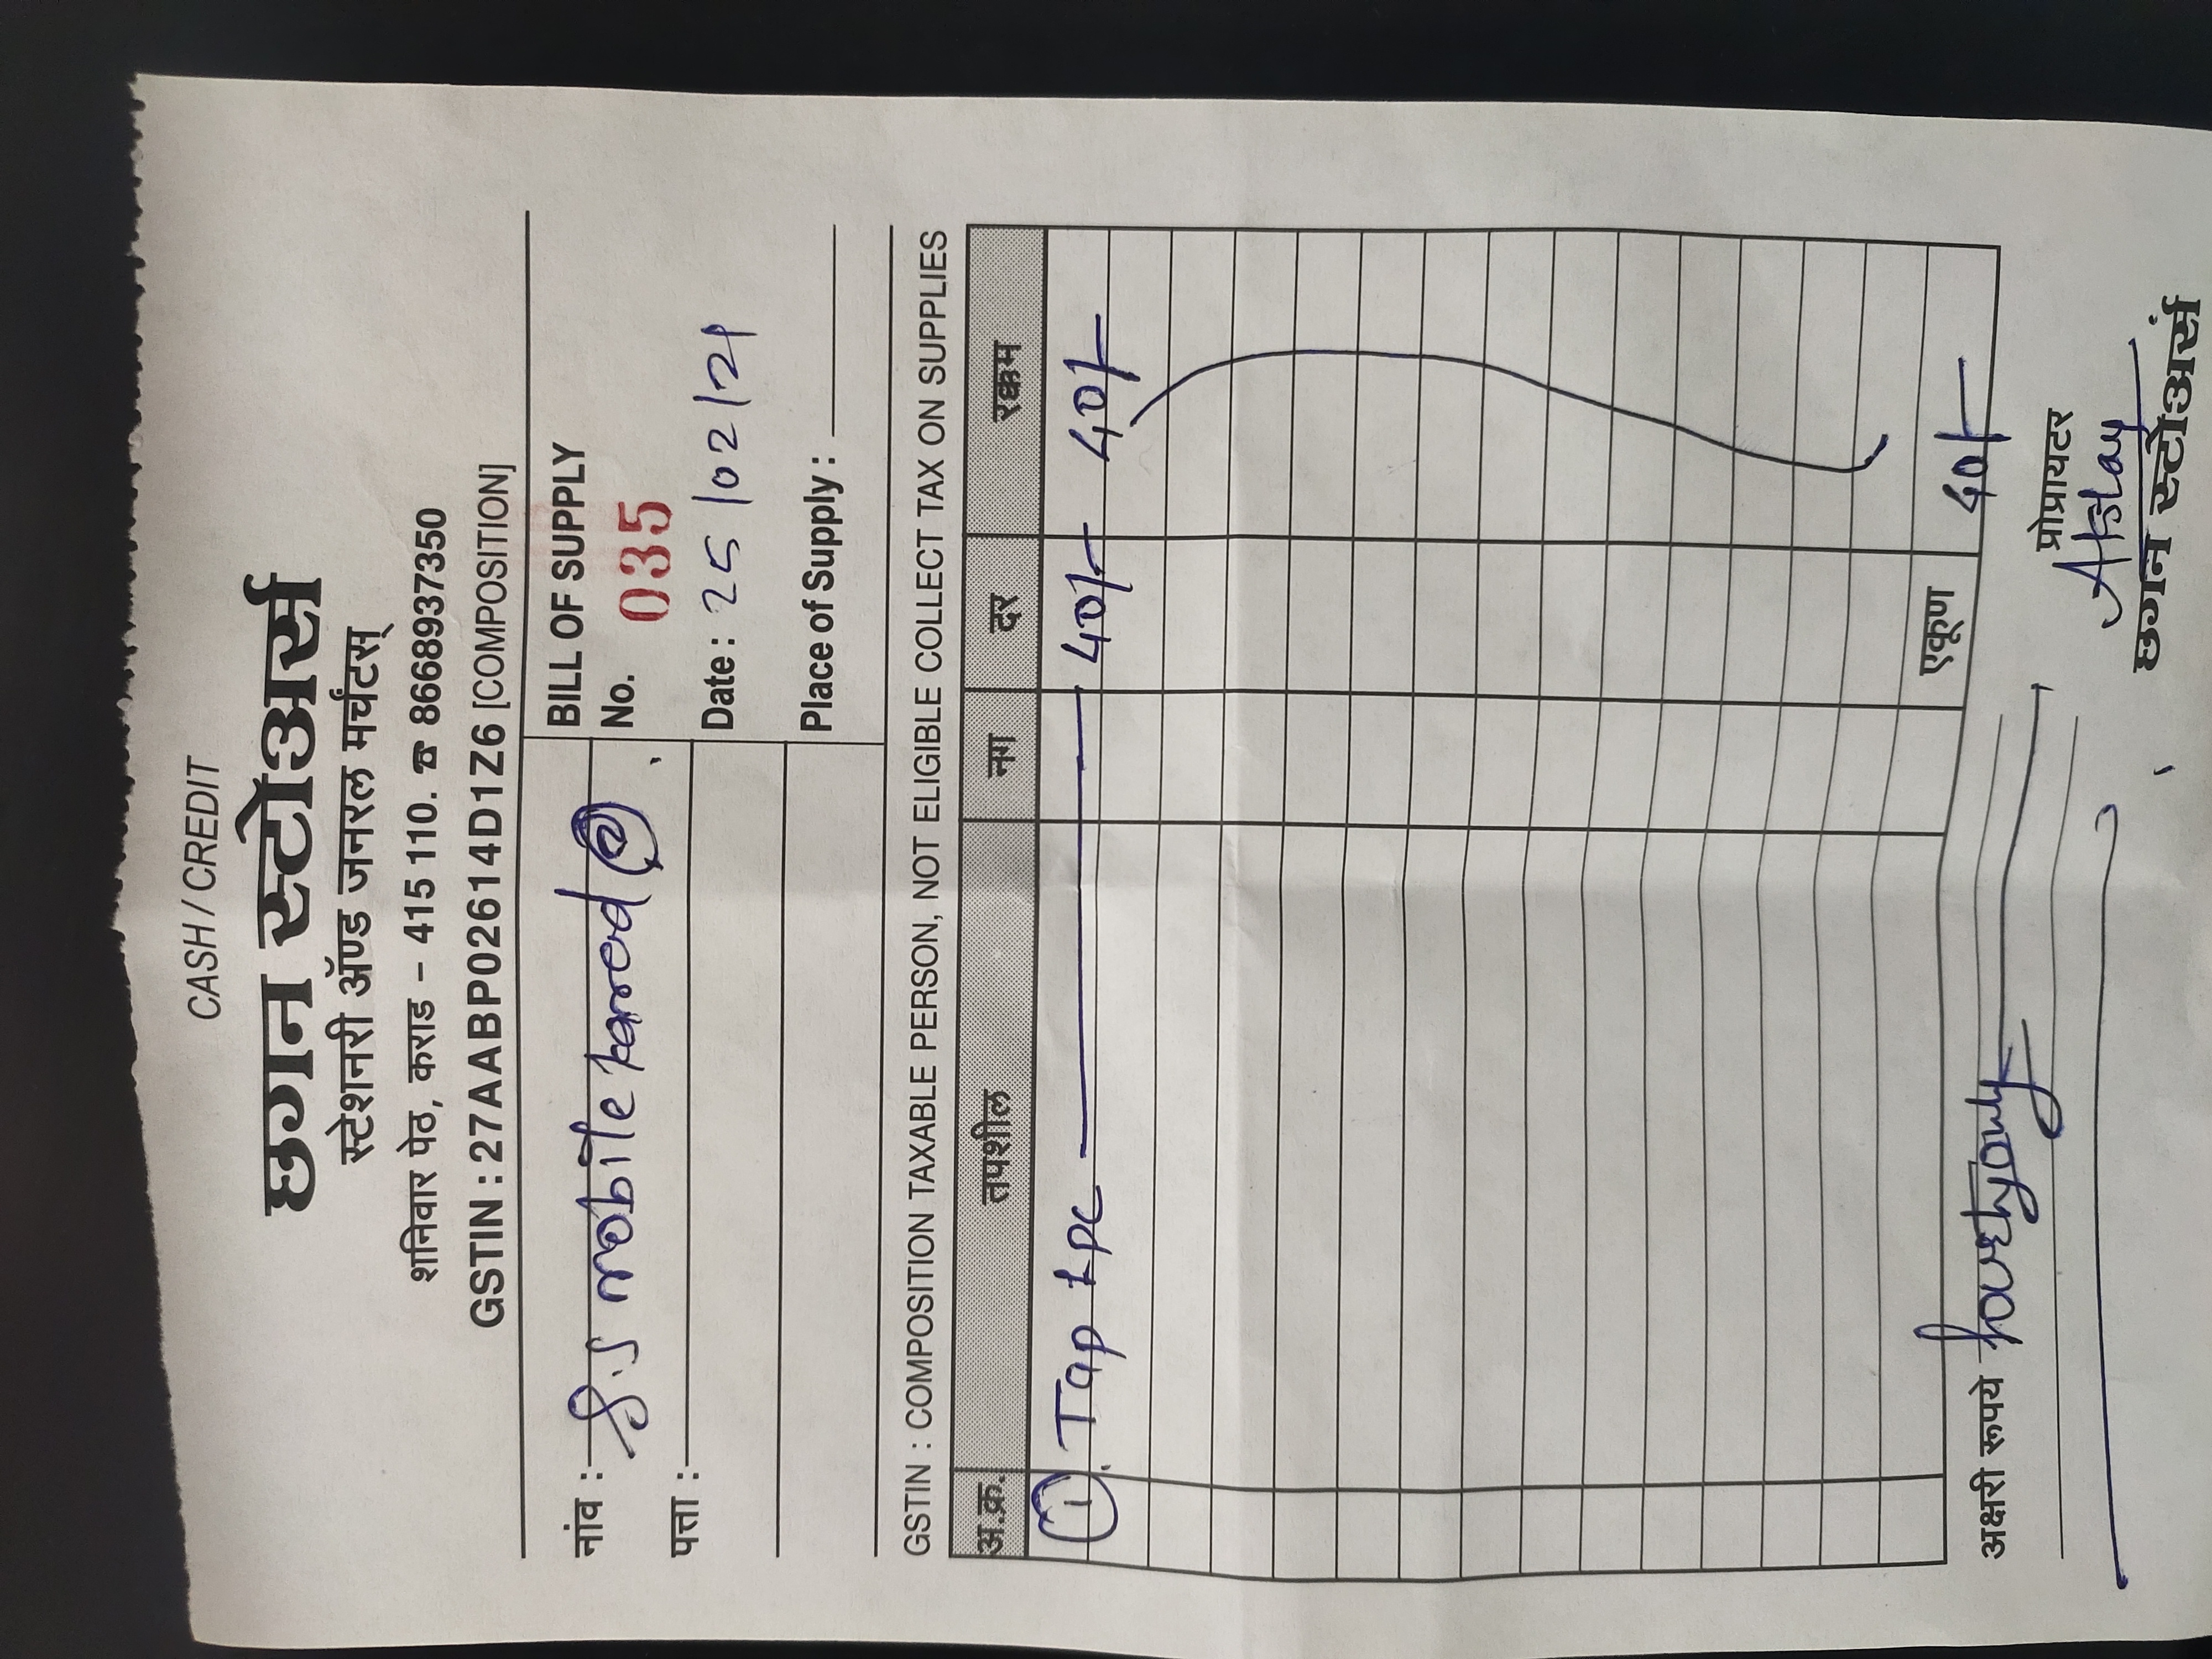 CASH / CREDIT
छगन स्टोअर्स
स्टेशनरी ॲण्ड जनरल मर्चंटस्
शनिवार पेठ, कराड – 415 110. ☎ 8668937350
GSTIN : 27AABP02614D1Z6 [COMPOSITION]
नांव : S.S mobile karad 2
पत्ता :
BILL OF SUPPLY
No. 035
Date : 25/02/21
Place of Supply :
GSTIN : COMPOSITION TAXABLE PERSON, NOT ELIGIBLE COLLECT TAX ON SUPPLIES
अ.क्र. तपशील नग दर रक्कम
1 Tap 1pc 40/- 40/-
एकूण 40/-
अक्षरी रूपये fourty only
प्रोप्रायटर
Akshay
छगन स्टोअर्स